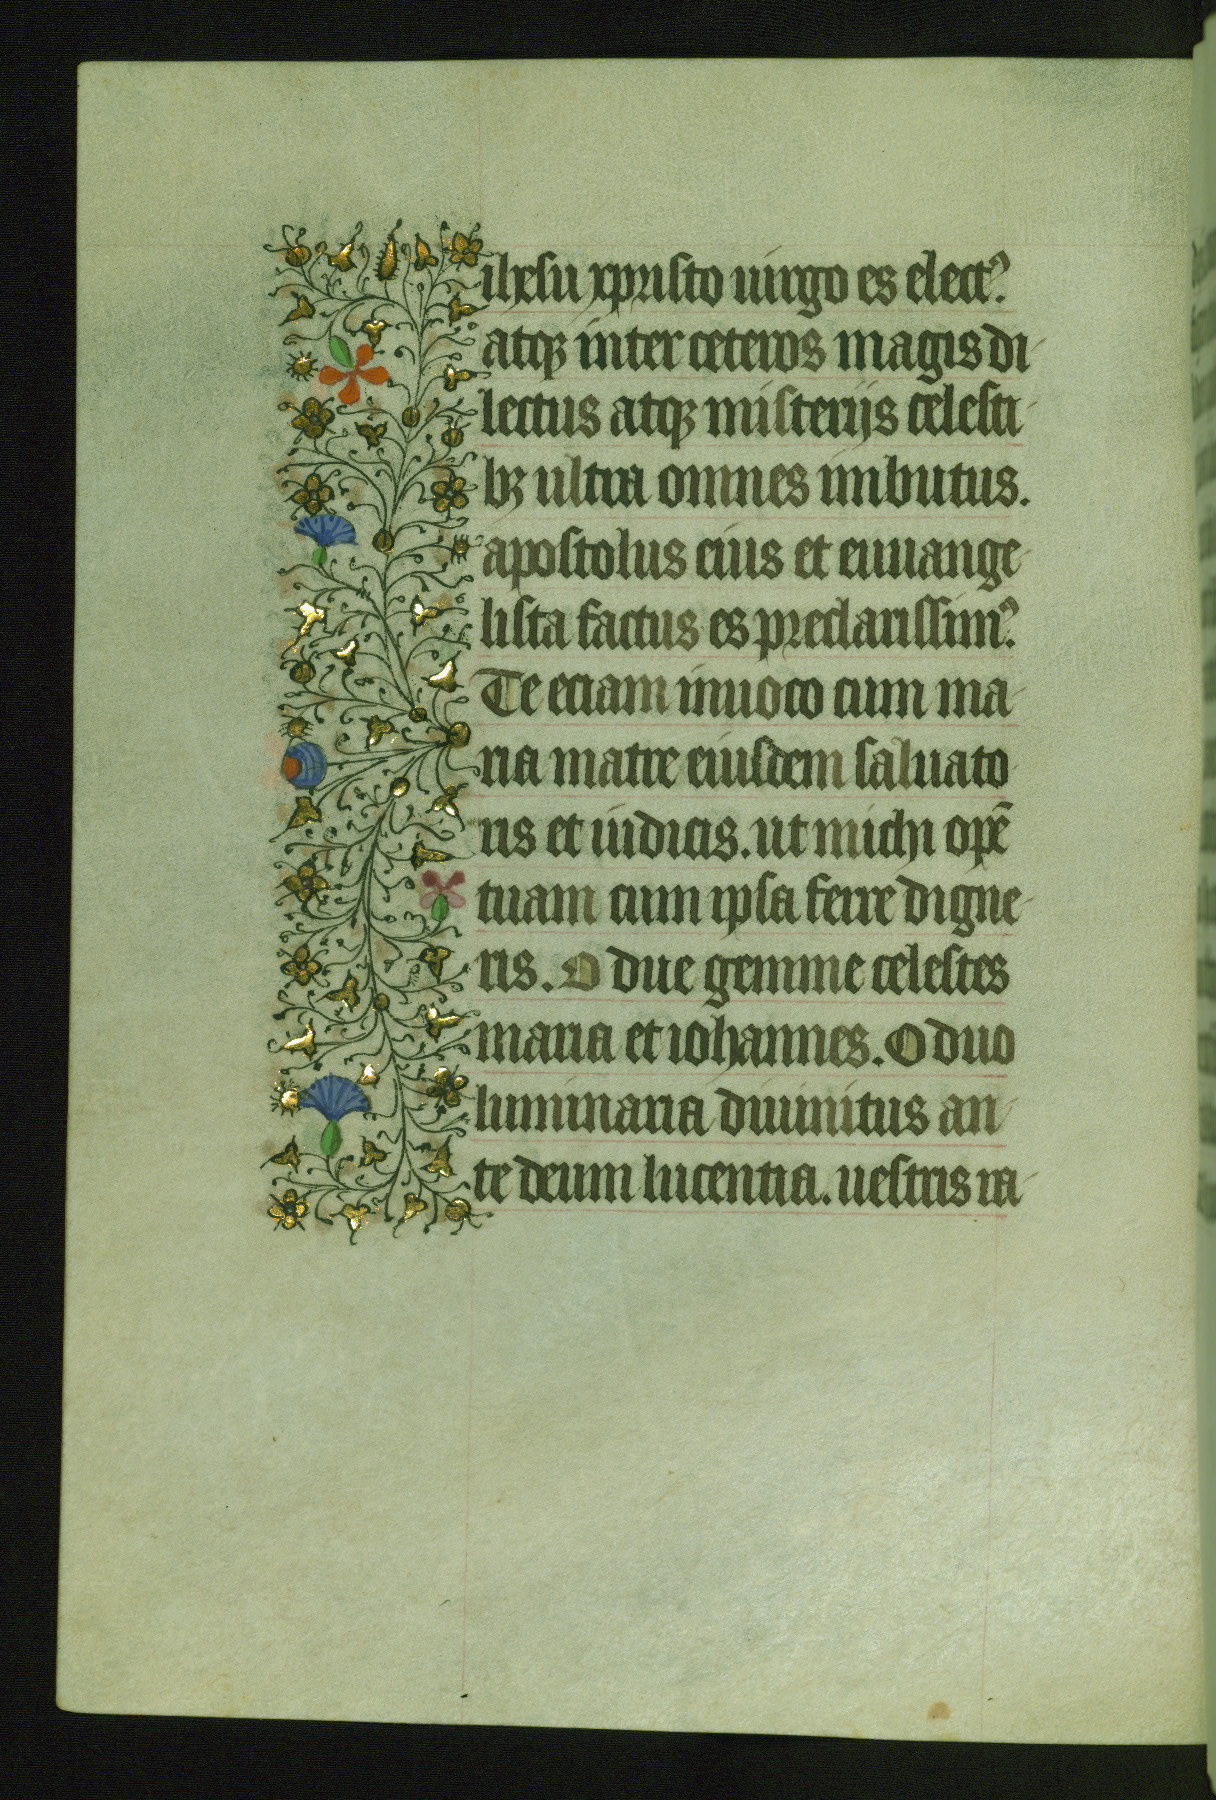 ihesu xpristo uirgo es elect᾽.
atqꝫ inter ceteros magis di-
lectus atqꝫ misterijs celesti-
bꝫ ultra omnes imbutus.
apostolus eius et euuange-
lista factus es preclarissim᾽.
Te eciam inuoco cum ma-
ria matre eiusdem saluato-
ris et iudicis. ut michi opē
tuam cum ipsa ferre digne-
ris. O due gemme celestes
maria et iohannes. O duo
luminaria diuinitus an-
te deum lucentia. uestris ra-